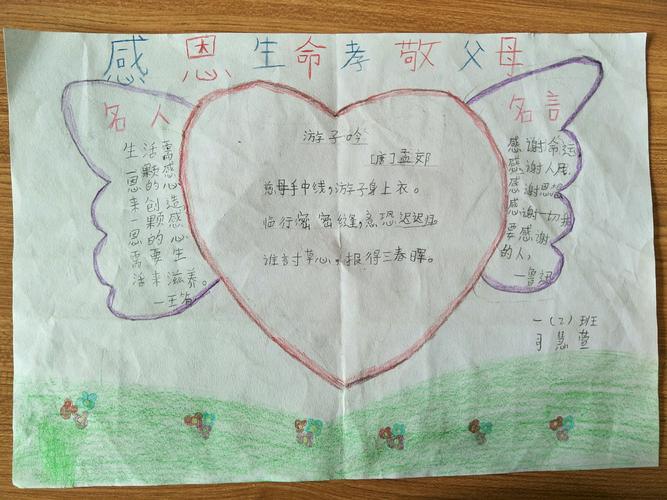 感恩生命孝敬父母
名人
生活需
一颗感
恩的心
来创造
一颗感
恩的心
需要生
活来滋养。
游子吟
[唐]孟郊
慈母手中线,游子身上衣。
临行密密缝,意恐迟迟归。
谁言寸草心,报得三春晖。
名言
感谢命运,
感谢人民,
感谢思想,
感谢一切我
要感谢
的人,
—鲁迅
一(2)班
慧萱